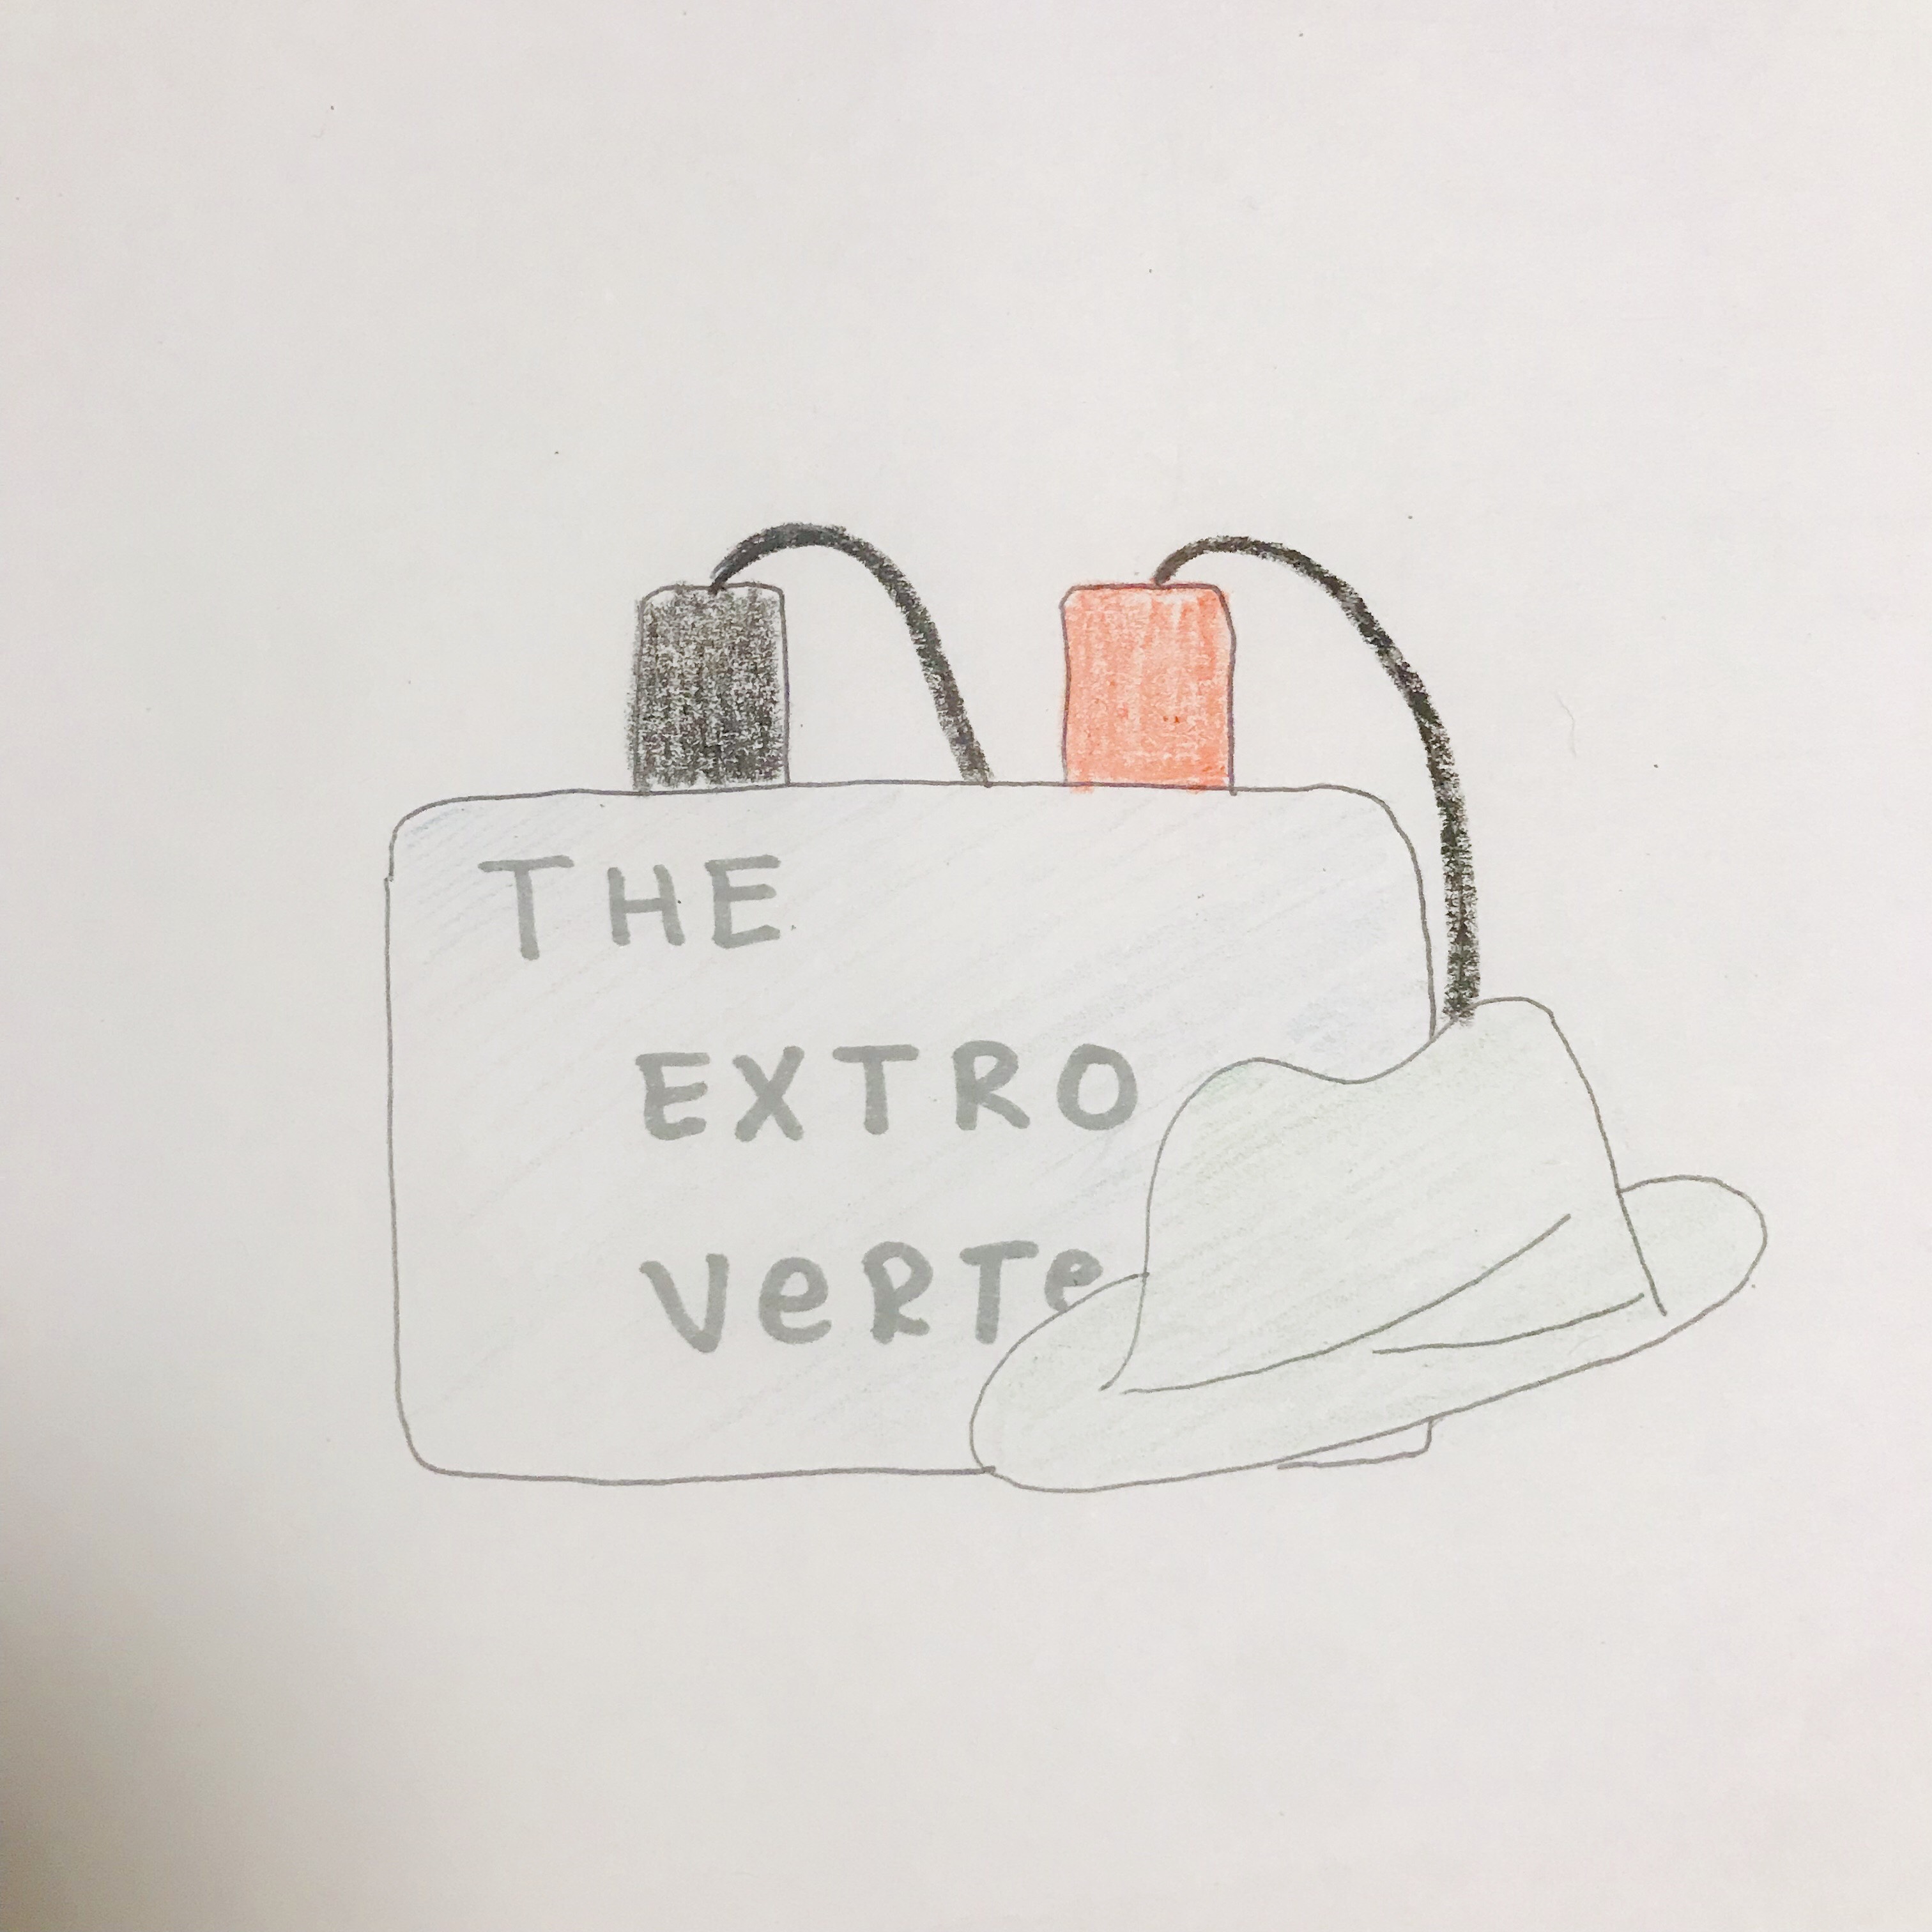 THE
EXTRO
VeRTe